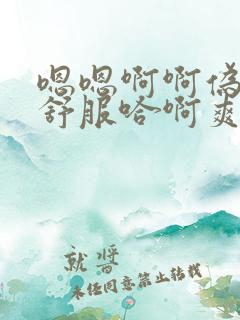 嗯嗯啊啊偽
舒服哈啊爽
就醬
未任同意禁止转载